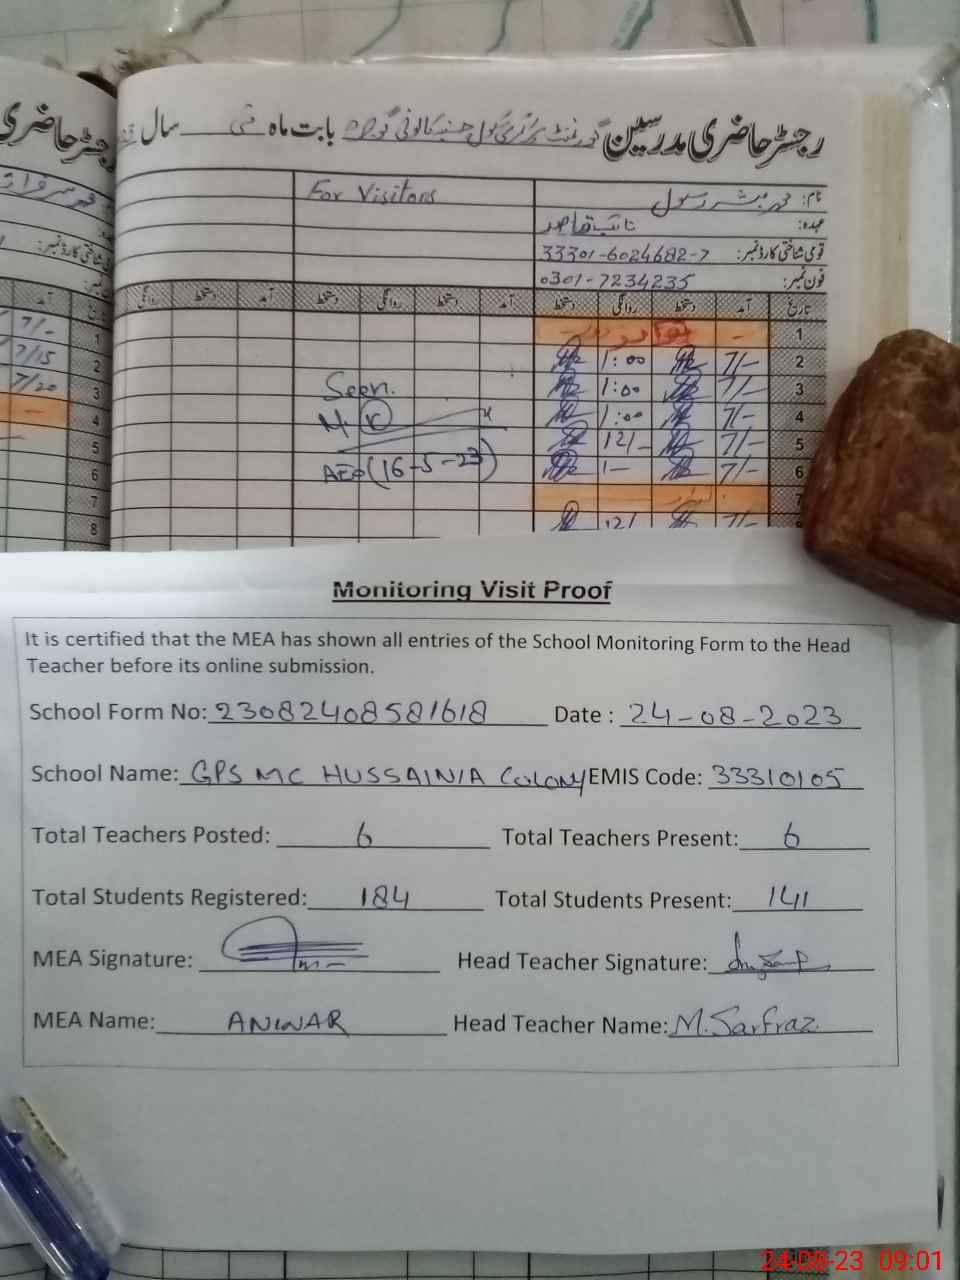 رجسٹر حاضری مدرسین گورنمنٹ پرائمری سکول حسینیہ کالونی گوجرہ بابت ماہ مئی سال
رجسٹر حاضری
For Visitors
نام: محمد مبشر رسول
عہدہ: نائب قاصد
قومی شناختی کارڈ نمبر: 33301-6024682-7
فون نمبر: 0301-7234235
تاریخ آمد دستخط روانگی دستخط آمد دستخط روانگی دستخط آمد دستخط روانگی
1 -
2 7/- 1:00
3 7/- 1:00
4 7/- 1:00
5 7/- 12/-
6 7/- 1-
7 اتوار
7/- 12/
Seen.
AEO (16-5-23)
آمد
7/- 1
7/15 2
7/20 3
- 4
5
6
7
8
Monitoring Visit Proof
It is certified that the MEA has shown all entries of the School Monitoring Form to the Head
Teacher before its online submission.
School Form No: 23082408581618 Date : 24-08-2023
School Name: GPS MC HUSSAINIA COLONY EMIS Code: 33310105
Total Teachers Posted: 6 Total Teachers Present: 6
Total Students Registered: 184 Total Students Present: 141
MEA Signature: Head Teacher Signature:
MEA Name: ANWAR Head Teacher Name: M.Sarfraz
24-08-23 09:01